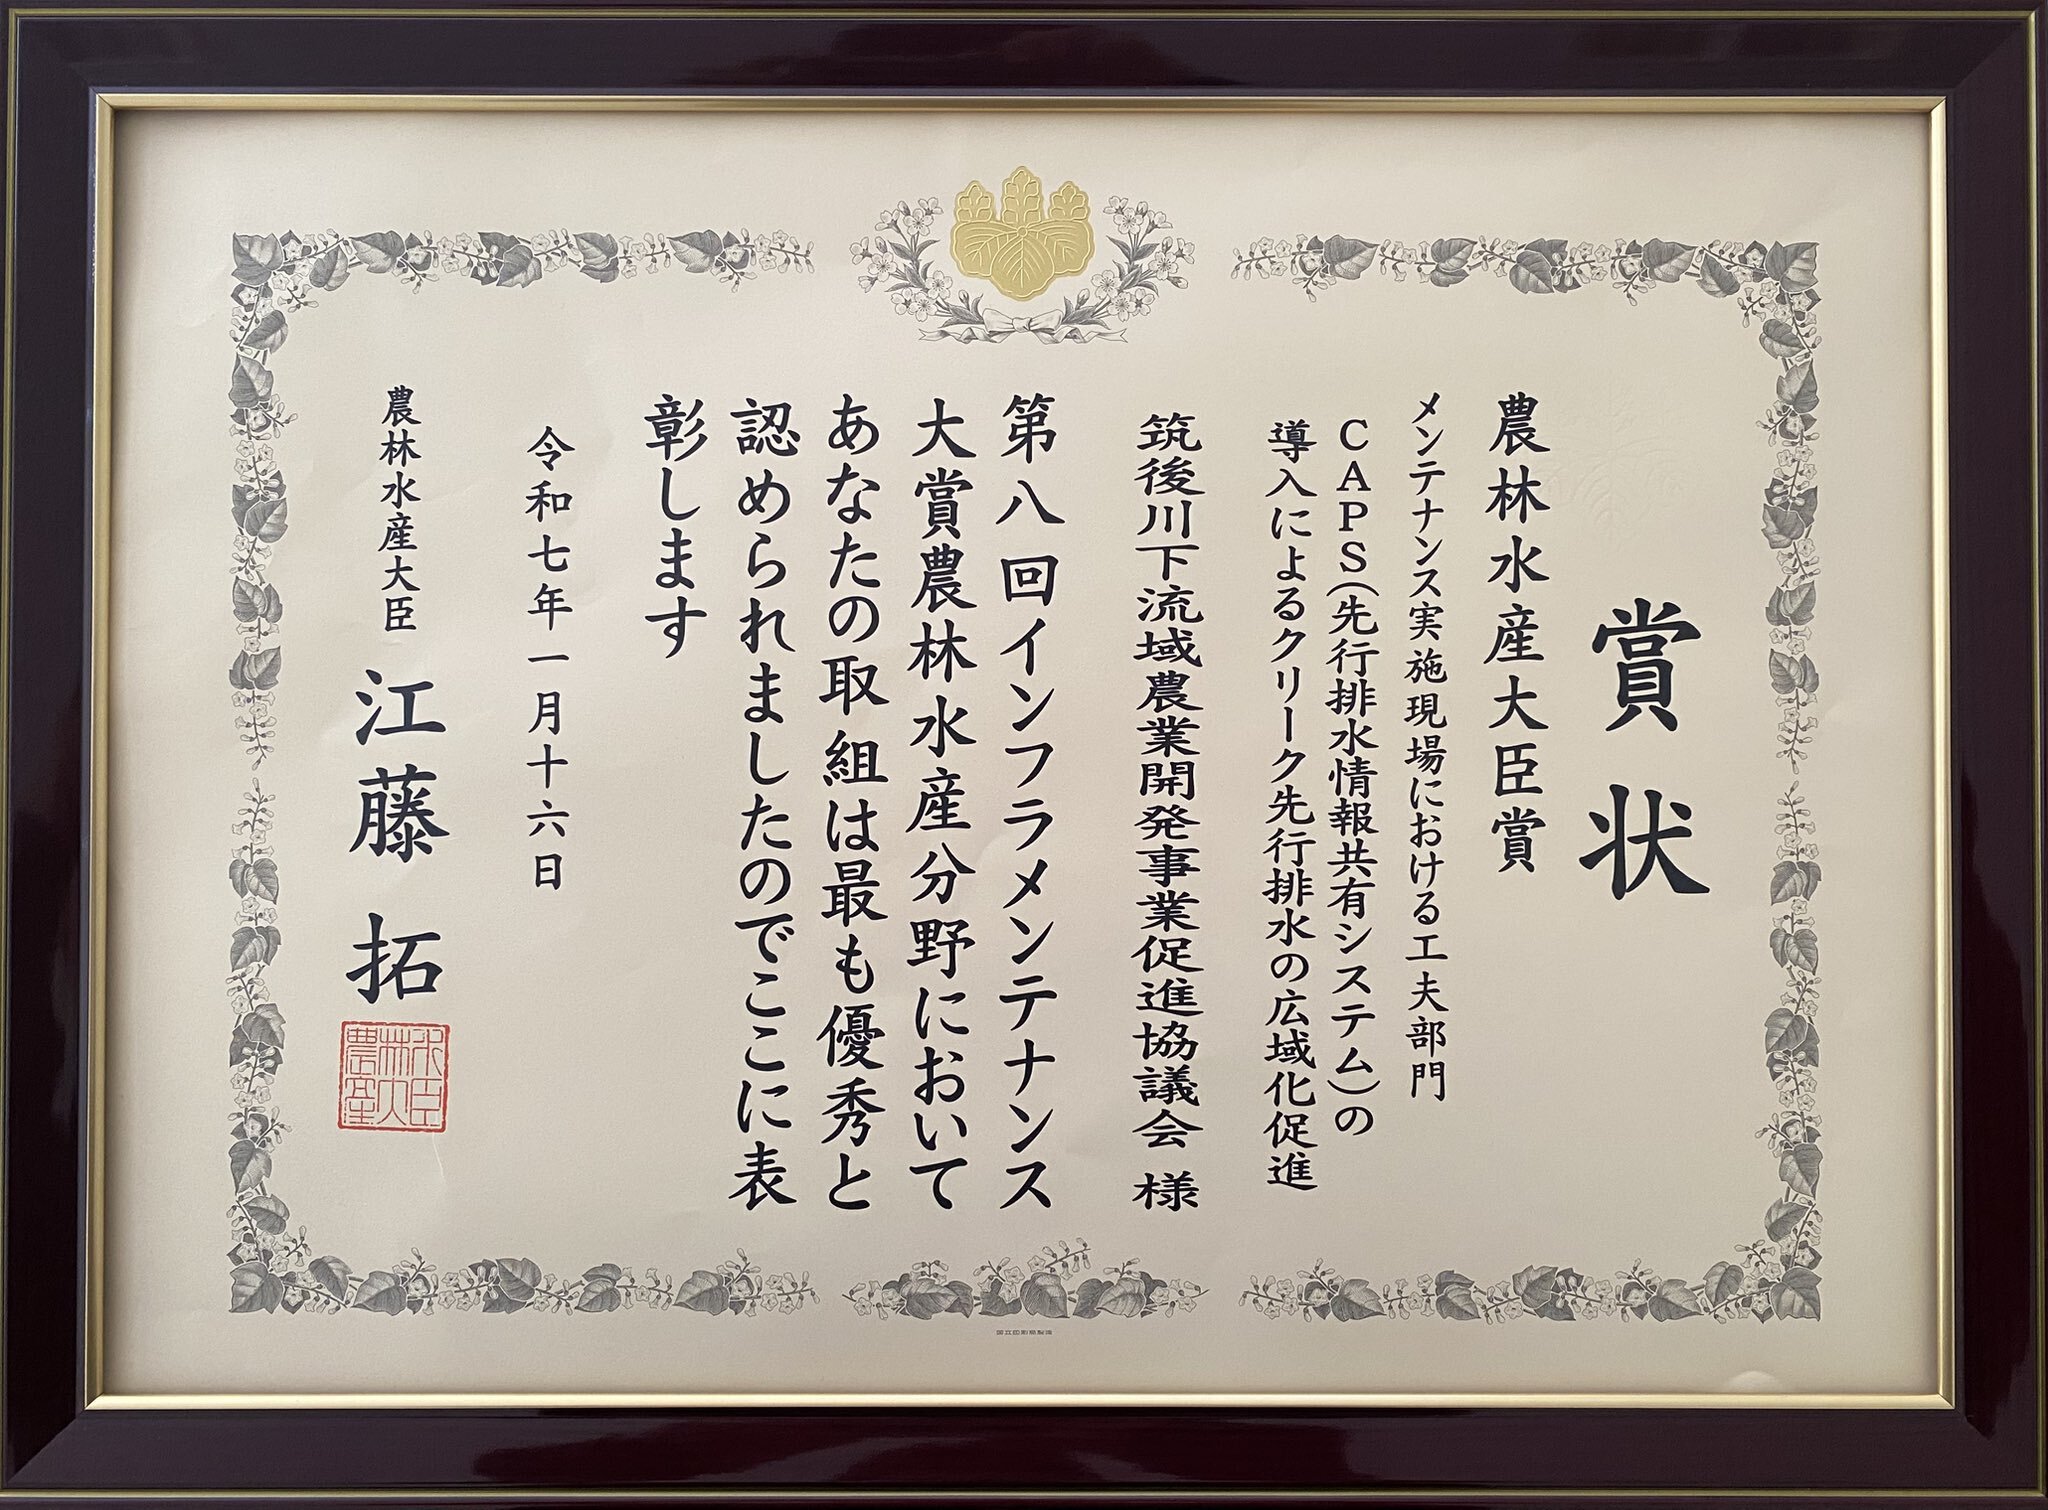 賞状
農林水産大臣賞
メンテナンス実施現場における工夫部門
CAPS(先行排水情報共有システム)の
導入によるクリーク先行排水の広域化促進
筑後川下流域農業開発事業促進協議会 様
第八回インフラメンテナンス
大賞農林水産分野において
あなたの取組は最も優秀と
認められましたのでここに表
彰します
令和七年一月十六日
農林水産大臣 江藤 拓
国立印刷局製造